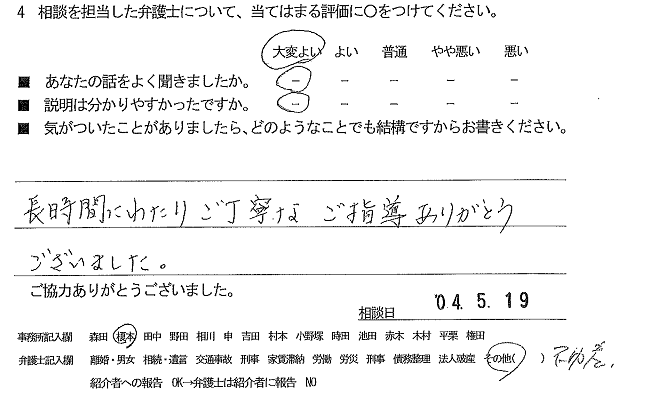 4 相談を担当した弁護士について、当てはまる評価に〇をつけてください。
大変よい よい 普通 やや悪い 悪い
■ あなたの話をよく聞きましたか。 － － － － －
■ 説明は分かりやすかったですか。 － － － － －
■ 気がついたことがありましたら、どのようなことでも結構ですからお書きください。
長時間にわたりご丁寧な ご指導ありがとう
ございました。
ご協力ありがとうございました。
相談日 '04.5.19
事務所記入欄 森田 榎本 田中 野田 相川 申 吉田 村本 小野塚 時田 池田 赤木 木村 平栗 権田
弁護士記入欄 離婚・男女 相続・遺言 交通事故 刑事 家賃滞納 労働 労災 刑事 債務整理 法人破産 その他( )
紹介者への報告 OK→弁護士は紹介者に報告 NO